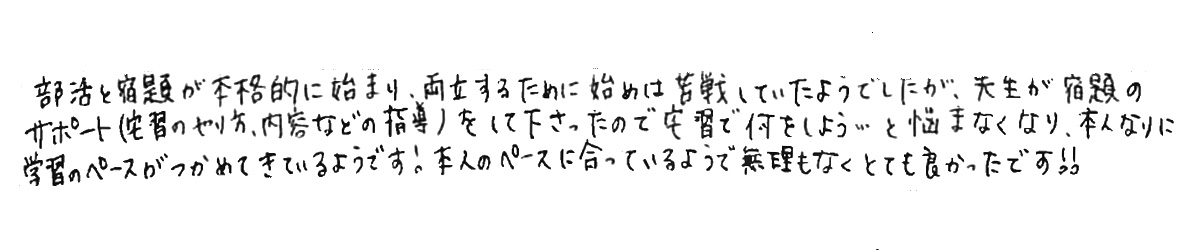 部活と宿題が本格的に始まり、両立するために始めは苦戦していたようでしたが、先生が宿題の
サポート(宅習のやり方、内容などの指導)をして下さったので宅習で何をしよう…と悩まなくなり、本人なりに
学習のペースがつかめてきているようです!本人のペースに合っているようで無理もなくとても良かったです!!